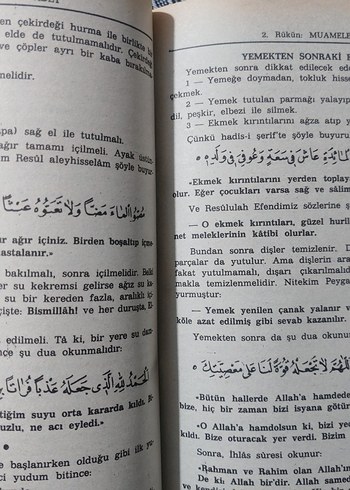 en çekirdeği hurma ile birlikte
elde de tutulmamalıdır. Çekirdeği
ve çöpler ayrı bir kaba bırakılma
melidir.
sağ el ile tutulmalı.
ağır tamamı içilmeli. Ayak üstün
Resûl aleyhisselâm şöyle buyur-
مُصُّوا الْمَاءَ مَصًّا وَلَا تَعُبُّوهُ عَبًّا
ur ağır içiniz. Birden boşaltıp içme-
astalanır.»
bakılmalı, sonra içilmelidir.
su kekremsi gelirse ağız su ka-
su bir kereden fazla, aralıklı
içişte: Bismillâh! ve her duruşta,
edilmeli. Tâ ki, bir yere su
nce şu dua okunmalıdır:
اَلْحَمْدُ لِلّٰهِ الَّذِى جَعَلَهُ عَذْبًا فُرَاتًا
tiğim suyu orta kararda kıldı.
uzlu, ne acı eyledi.»
•
e başlanırken olduğu gibi ilk
ci yudum bitince:
2. Rükün: MUAMELE
YEMEKTEN SONRAKİ
Yemekten sonra dikkat edilecek ede
1 — Yemeğe doymadan, tokluk hisse
çekmek.
2 — Yemek tutulan parmağı yalayıp
dil, peşkir, elbezi ile silmek.
3 — Ekmek kırıntılarını ağza atıp y
Çünkü hadis-i şerif'te şöyle buyuru
الْمَائِدَةِ عَاشَ فِى سَعَةٍ وَعُوفِىَ فِى وَلَدِهِ
«Ekmek kırıntılarını yerden toplaya
olur. Eğer çocukları varsa sağ ve sâlim
Ve Resûlulah Efendimiz sözlerine ş
— O ekmek kırıntıları, güzel huril
net meleklerinin kâtibi olurlar.
Bundan sonra dişler temizlenir. D
parçalar da yutulur. Ama dişlerin ara
fakat yutulmamalı, dışarı çıkarılmalıd
makla temizlenmelidir. Nitekim Peyga
yurmuştur:
— Yemek yenilen çanak yalanır v
köle azat edilmiş gibi sevab kazanılır.
Yemekten sonra da şu dua okunur:
اَللّٰهُمَّ لَا تَجْعَلْهُ قُوَّةً لَنَا عَلَى مَعْصِيَتِكَ
«Bütün hallerde Allah'a hamdede
bize, hiç bir zaman bizi isyana götür
«O Allah'a hamdolsun ki, bizi yed
kıldı. Bize oturacak yer verdi. Bizim
Sonra, Ihlâs sûresi okunur:
«Rahman ve Rahim olan Allah'ın
De ki, Allah bir'dir. Allah samed